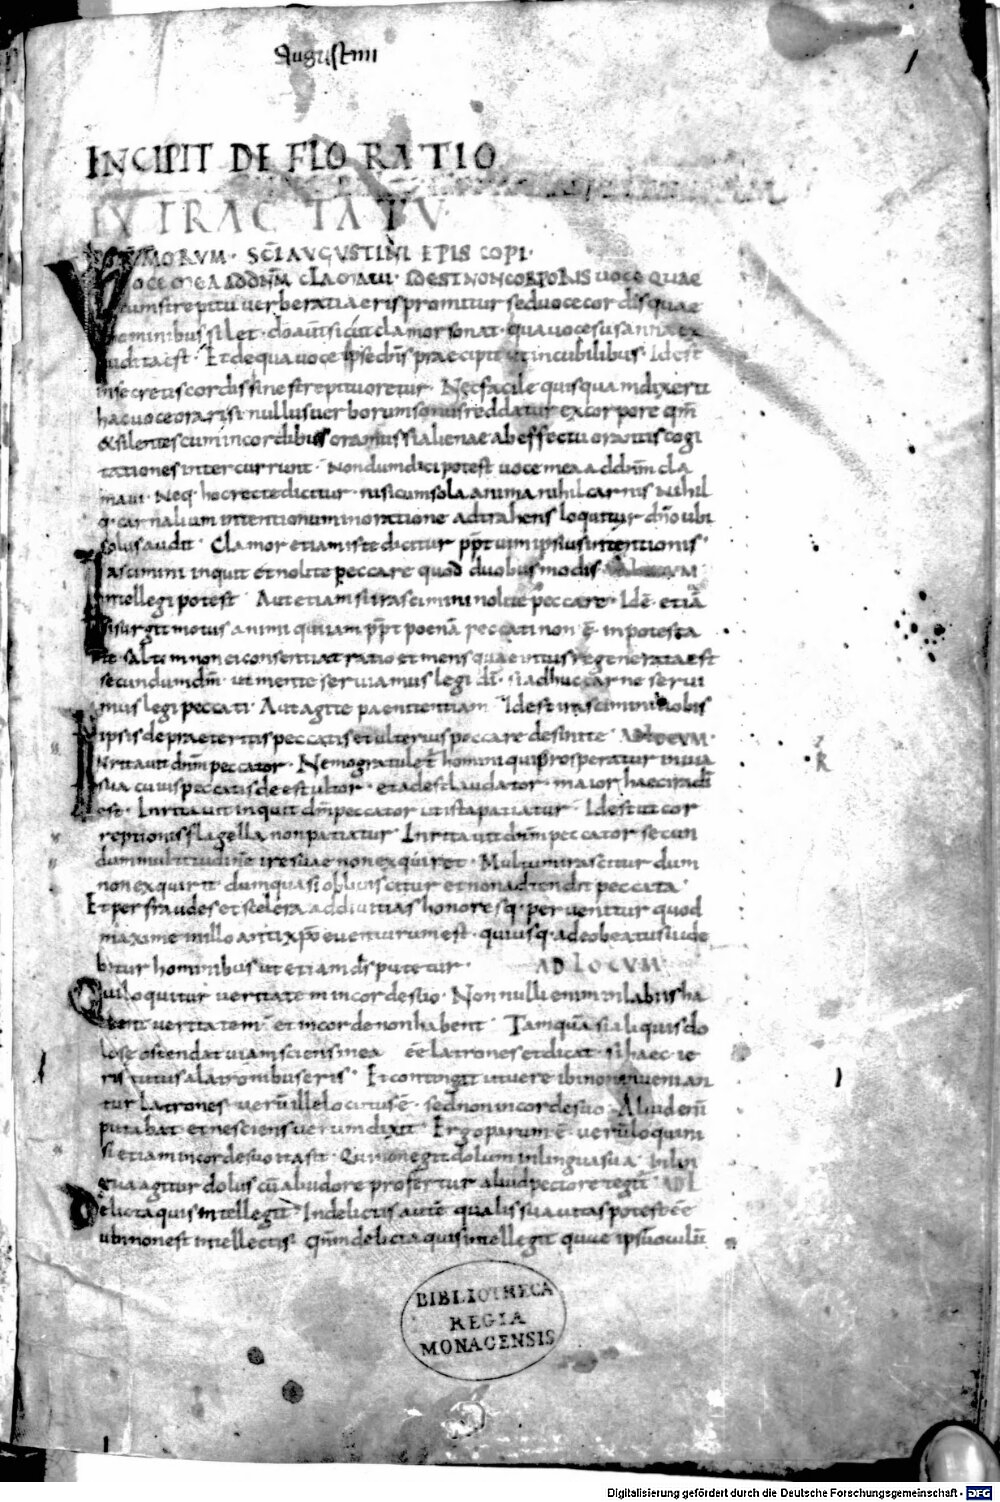 Augustini
1
INCIPIT DEFLORATIO
EX TRACTATU
PSALMORUM · SCI AUGUSTINI EPISCOPI ·
VOCE MEA AD DNM CLAMAVI · ID EST NON CORPORIS uoce quae
cum strepitu uerberati aeris promitur sed uoce cordis quae
hominibus silet · do aut sicut clamor sonat · qua uoce susanna ex
audita est · Et de qua uoce ipse dns praecipit ut in cubilibus · Id est
in secretis cordis sine strepitu oretur · Nec facile quisquam dixerit
hac uoce orari si nullus uerborum sonus reddatur ex corpore qm
& silentes cum in cordibus oramus si alienae ab effectu orantis cogi
tationes intercurrunt · Nondum dici potest uoce mea ad dnm cla
maui · Neq· hoc recte dicitur · nisi cum sola anima nihil carnis Nihil
q· carnalium intentionum in oratione adtrahens loquitur dno ubi
solus audit · Clamor etiam iste dicitur ppt uim ipsius intentionis ·
Irascimini inquit et nolite peccare quod duobus modis
intellegi potest · Aut etiam si irascimini nolite peccare · Id e· etiā
si surgit motus animi qui iam ppt poenā peccati non ē· in potesta
te saltem non ei consentiat ratio et mens quae intus regenerata est
secundum dm· ut mente seruiamus legi di· si adhuc carne serui
mus legi peccati · Aut agite paenitentiam · Id est irascimini uobis
ipsis de praeteritis peccatis et ulterius peccare desinite AD LOCUM ·
Inritauit dnm peccator · Nemo gratulet homini qui prosperatur in uia
sua cuius peccatis deest ultor · et adest laudator · maior haec ira di
est · Inritauit inquit dm peccator ut ista patiatur · Id est ut cor
reptionis flagella non patiatur · Inritauit dnm peccator secun
dum multitudine irae suae non exquiret · Multum irascitur dum
non exquirit dum quasi obliuiscitur et non adtendit peccata ·
Et per fraudes et scelera ad diuitias honoresq· peruenitur quod
maxime in illo antixpo euenturum est · quiusq· adeo beatus uide
bitur hominibus ut etiam ds putetur · AD LOCUM
Qui loquitur ueritatem in corde suo · Non nulli enim in labiis ha
bent ueritatem · et in corde non habent · Tamquā si aliquis do
lose ostendat uiam sciens in ea eē latrones et dicat · si hac ie
ris tutus a latronibus eris · Et contingit ut uere ibi non inuenian
tur latrones · uerū ille locutus ē· sed non in corde suo · Aliud enī
putabat et nesciens uerum dixit · Ergo parum ē· uerū loqui ni
si etiam in corde suo ita sit · Qui non egit dolum in lingua sua · In lin
gua agitur dolus cū ab u ore profertur aliud pectore tegit AD L
Delicta quis intellegit · In delictis autē qualis suauitas potest eē
ubi non est intellectis · Qnm delicta quis intellegit
BIBLIOTHECA
REGIA
MONACENSIS
Digitalisierung gefördert durch die Deutsche Forschungsgemeinschaft - DFG